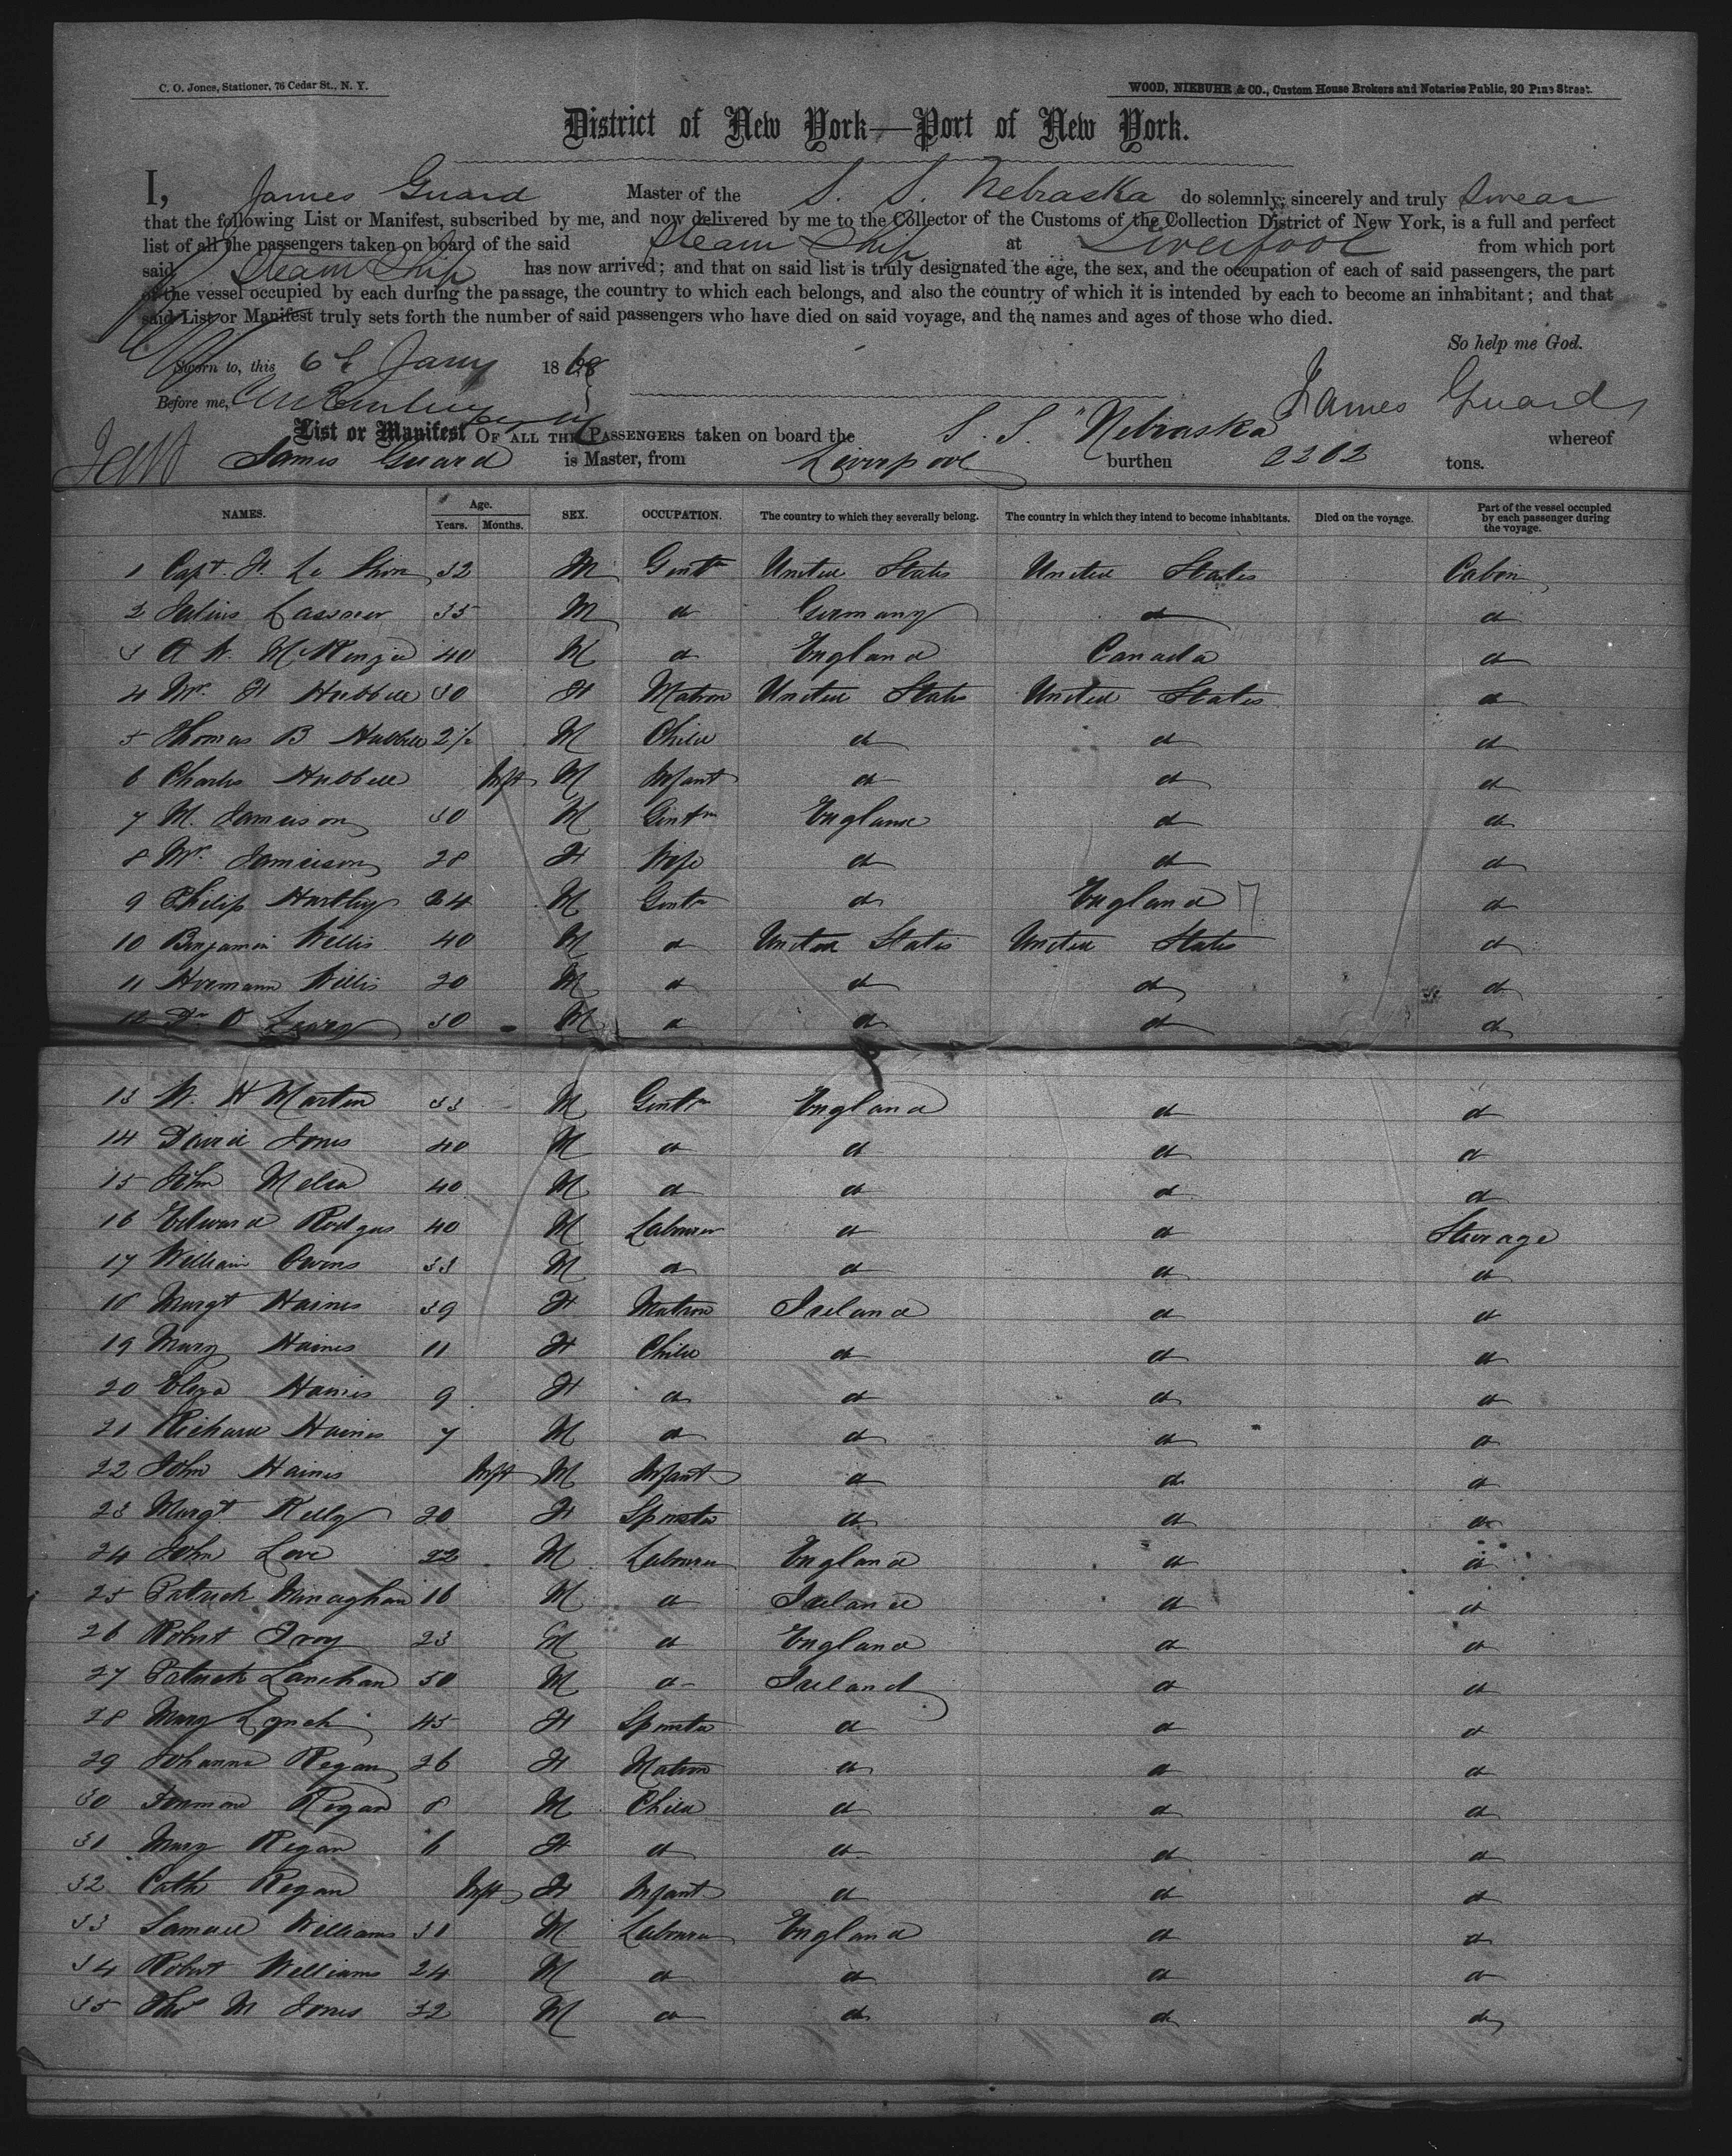 C. O. Jones, Stationer, 76 Cedar St., N. Y.
WOOD, NIEBUHR & CO., Custom House Brokers and Notaries Public, 20 Pine Street.
District of New York—Port of New York.
I, James Guard Master of the S. S. Nebraska do solemnly, sincerely and truly swear
that the following List or Manifest, subscribed by me, and now delivered by me to the Collector of the Customs of the Collection District of New York, is a full and perfect
list of all the passengers taken on board of the said Steam Ship at Liverpool from which port
said Steam Ship has now arrived; and that on said list is truly designated the age, the sex, and the occupation of each of said passengers, the part
of the vessel occupied by each during the passage, the country to which each belongs, and also the country of which it is intended by each to become an inhabitant; and that
said List or Manifest truly sets forth the number of said passengers who have died on said voyage, and the names and ages of those who died.
So help me God.
Sworn to, this 6th Jany 1868
Before me,
James Guard
List or Manifest OF ALL THE PASSENGERS taken on board the S. S. "Nebraska whereof
James Guard is Master, from Liverpool burthen 2202 tons.
NAMES. Age. Years. Months. SEX. OCCUPATION. The country to which they severally belong. The country in which they intend to become inhabitants. Died on the voyage. Part of the vessel occupied by each passenger during the voyage.
1 Capt. H. Le 32 M Gentn United States United States Cabin
2 Julius 35 M do Germany do do
3 A W. McKenzie 40 M do England Canada do
4 Mrs. H Hubbell 30 F Matron United States United States do
5 Thomas B Hubbell 2½ M Child do do do
6 Charles Hubbell Inft M Infant do do do
7 M. Jamieson 30 M Gentn England do do
8 Mrs. Jamieson 28 F Wife do do do
9 Philip Hartley 24 M Gentn do England do
10 Benjamin Willis 40 M do United States United States do
11 Hermann Willis 20 M do do do do
12 Dr O 30 M do do do do
13 W. H Martin 33 M Gentn England do do
14 David Jones 40 M do do do do
15 John Melsa 40 M do do do do
16 Edward Rodgers 40 M Labourer do do Steerage
17 William Owens 33 M do do do do
18 Margt Haines 39 F Matron Ireland do do
19 Mary Haines 11 F Child do do do
20 Eliza Haines 9 F do do do do
21 Richard Haines 7 M do do do do
22 John Haines Inft M Infant do do do
23 Margt Kelly 20 F Spinster do do do
24 John Love 22 M Labourer England do do
25 Patrick Minaghan 16 M do Ireland do do
26 Robert Troy 23 M do England do do
27 Patrick Lanehan 50 M do Ireland do do
28 Mary Lynch 45 F Spinster do do do
29 Johanna Regan 26 F Matron do do do
30 Regan 8 M Child do do do
31 Mary Regan 6 F do do do do
32 Cath Regan Inft F Infant do do do
33 Samuel Williams 31 M Labourer England do do
34 Robert Williams 24 M do do do do
35 Thos M Jones 32 M do do do do